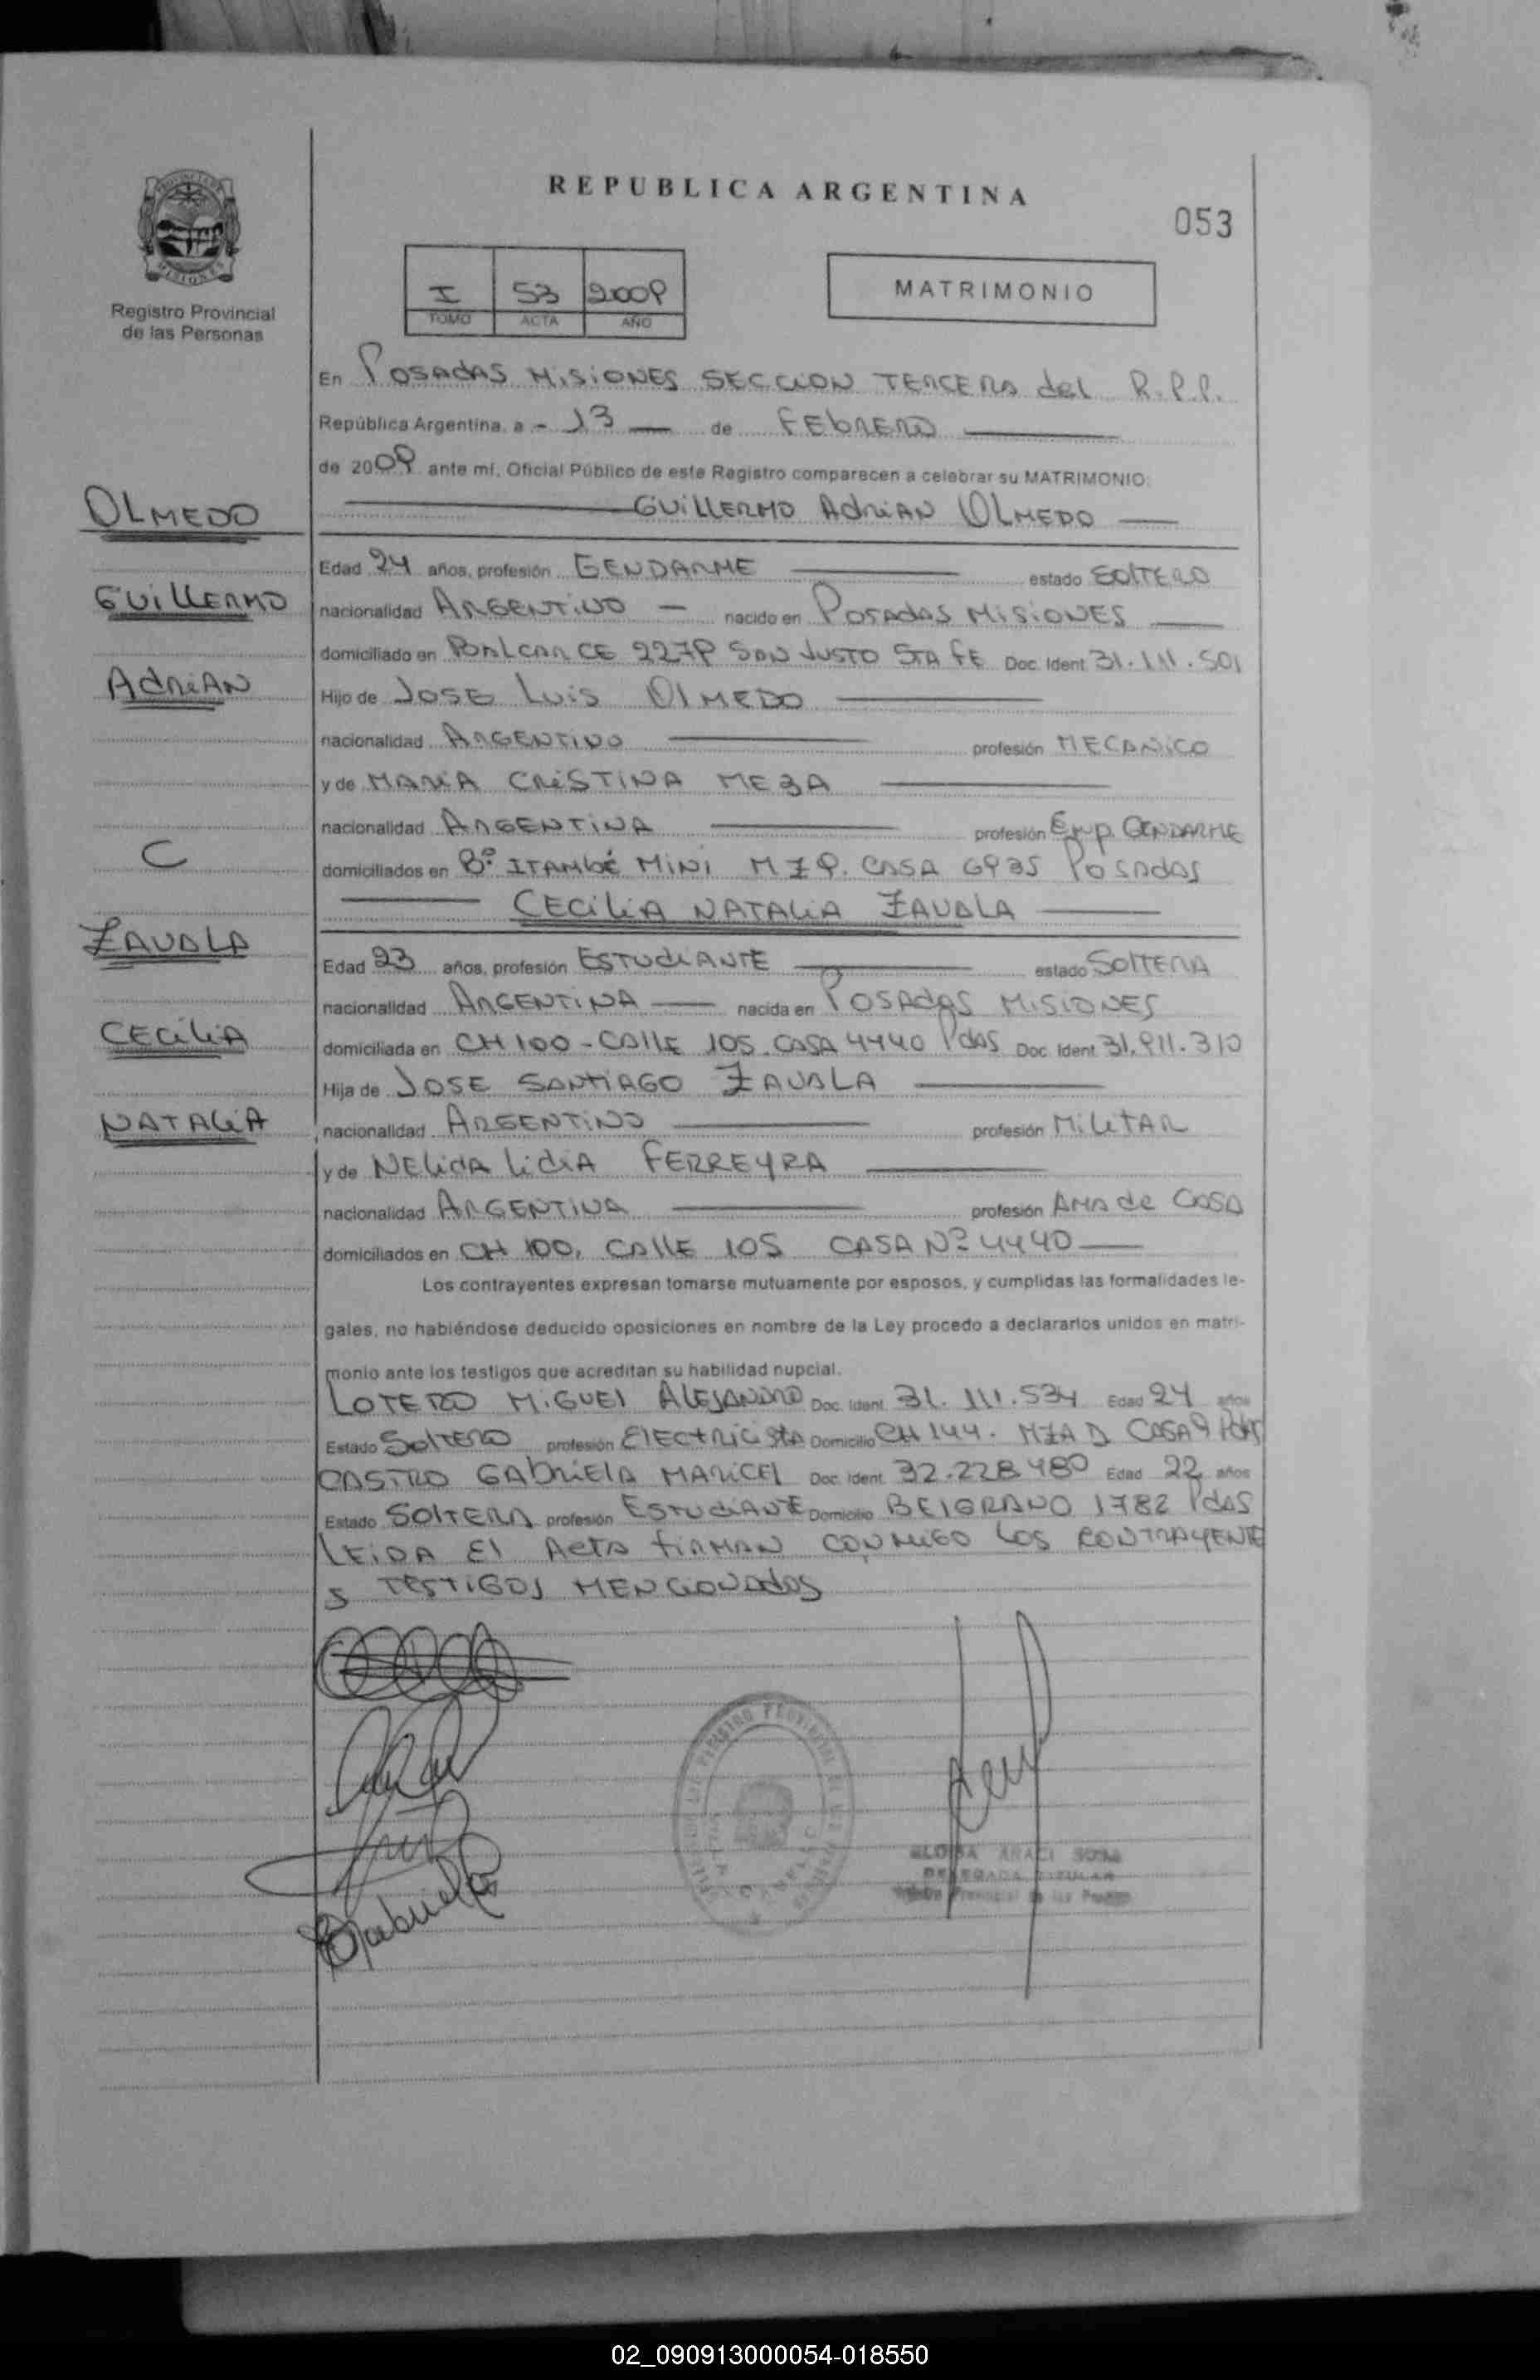 REPUBLICA ARGENTINA
053
Registro Provincial
de las Personas
I 53 2009
TOMO ACTA AÑO
MATRIMONIO
En POSADAS MISIONES SECCION TERCERA del R.P.P.
República Argentina, a - 13 — de FEBRERO
de 2009 ante mí, Oficial Público de este Registro comparecen a celebrar su MATRIMONIO:
OLMEDO
GUILLERMO ADRIAN OLMEDO
Edad 24 años, profesión GENDARME estado SOLTERO
GUILLERMO
nacionalidad ARGENTINO — nacido en POSADAS MISIONES
domiciliado en BALCARCE 2279 SAN JUSTO STA FE Doc. Ident 31.111.501
ADRIAN
Hijo de JOSE LUIS OLMEDO
nacionalidad ARGENTINO profesión MECANICO
y de MARIA CRISTINA MEZA
nacionalidad ARGENTINA profesión Emp. GENDARME
C
domiciliados en Bº ITAMBÉ MINI MZ 9. CASA 6935 POSADAS
CECILIA NATALIA ZAVALA
ZAVALA
Edad 23 años, profesión ESTUDIANTE estado SOLTERA
nacionalidad ARGENTINA — nacida en POSADAS MISIONES
CECILIA
domiciliada en CH 100 - CALLE 105. CASA 4440 Pdas Doc. Ident 31.911.310
Hija de JOSE SANTIAGO ZAVALA
NATALIA
nacionalidad ARGENTINO profesión MILITAR
y de NELIDA LIDIA FERREYRA
nacionalidad ARGENTINA profesión AMA de CASA
domiciliados en CH 100, CALLE 105 CASA Nº 4440
Los contrayentes expresan tomarse mutuamente por esposos, y cumplidas las formalidades le-
gales, no habiéndose deducido oposiciones en nombre de la Ley procedo a declararlos unidos en matri-
monio ante los testigos que acreditan su habilidad nupcial.
LOTERO MIGUEL ALEJANDRO Doc. Ident. 31.111.534 Edad 24 años
Estado SOLTERO profesión ELECTRICISTA Domicilio CH 144. MZA D CASA 9 Pdas
CASTRO GABRIELA MARICEL Doc. Ident. 32.228.480 Edad 22 años
Estado SOLTERA profesión ESTUDIANTE Domicilio BELGRANO 1782 Pdas
LEIDA El ACTA FIRMAN CONMIGO LOS CONTRAYENTE
S TESTIGOS MENCIONADOS
Gabriela
ELOISA ARACI SOSA
DELEGADA TITULAR
Provincial de las Personas
02_090913000054-018550